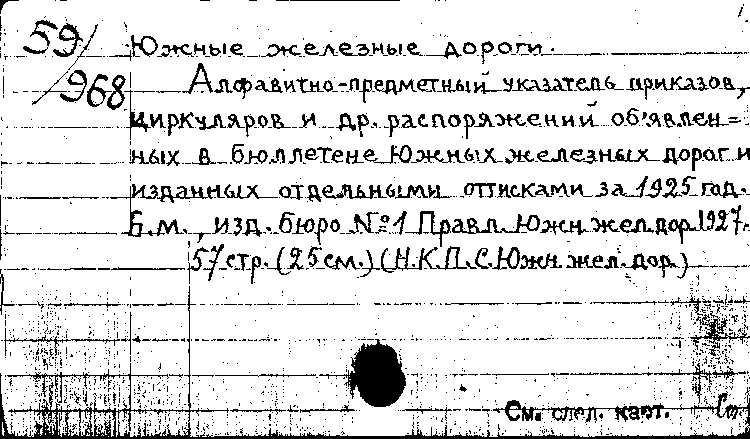 59/968
Южные железные дороги.
Алфавитно-предметный указатель приказов,
циркуляров и др. распоряжений об'явлен=
ных в бюллетене Южных железных дорог и
изданных отдельными оттисками за 1925 год.
Б.м., изд. бюро №1 Правл. Южн. жел. дор. 1927.
57 стр. (25 см.) (Н.К.П.С. Южн. жел. дор.)
См. след. карт.